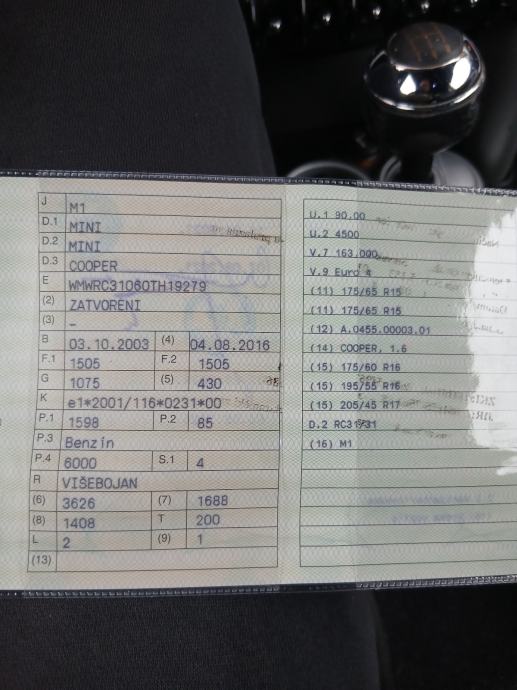 J M1
D.1 MINI
D.2 MINI
D.3 COOPER
E WMWRC31060TH19279
(2) ZATVORENI
(3) -
B 03.10.2003 (4) 04.08.2016
F.1 1505 F.2 1505
G 1075 (5) 430
K e1*2001/116*0231*00
P.1 1598 P.2 85
P.3 Benzin
P.4 6000 S.1 4
R VIŠEBOJAN
(6) 3626 (7) 1688
(8) 1408 T 200
L 2 (9) 1
(13)
U.1 90,00
U.2 4500
V.7 163.000
V.9 Euro 4
(11) 175/65 R15
(11) 175/65 R15
(12) A.0455.00003.01
(14) COOPER, 1.6
(15) 175/60 R16
(15) 195/55 R16
(15) 205/45 R17
D.2 RC31
(16) M1